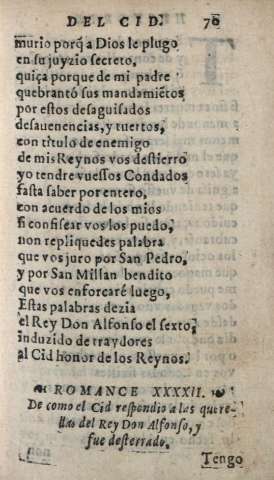 DEL CID. 70
murio porq̃ a Dios le plugo
en su juyzio secreto,
quiça porque de mi padre
quebrantó sus mandamiẽtos
por estos desaguisados
desauenencias, y tuertos,
con titulo de enemigo
de mis Reynos vos destierro
yo tendre vuessos Condados
fasta saber por entero,
con acuerdo de los mios
si confisear vos los puedo,
non repliquedes palabra
que vos juro por San Pedro,
y por San Millan bendito
que vos enforcaré luego,
Estas palabras dezia
el Rey Don Alfonso el sexto,
induzido de traydores
al Cid honor de los Reynos.
ROMANCE XXXXII.
De como el Cid respondio a las quere-
llas del Rey Don Alfonso, y
fue desterrado.
Tengo